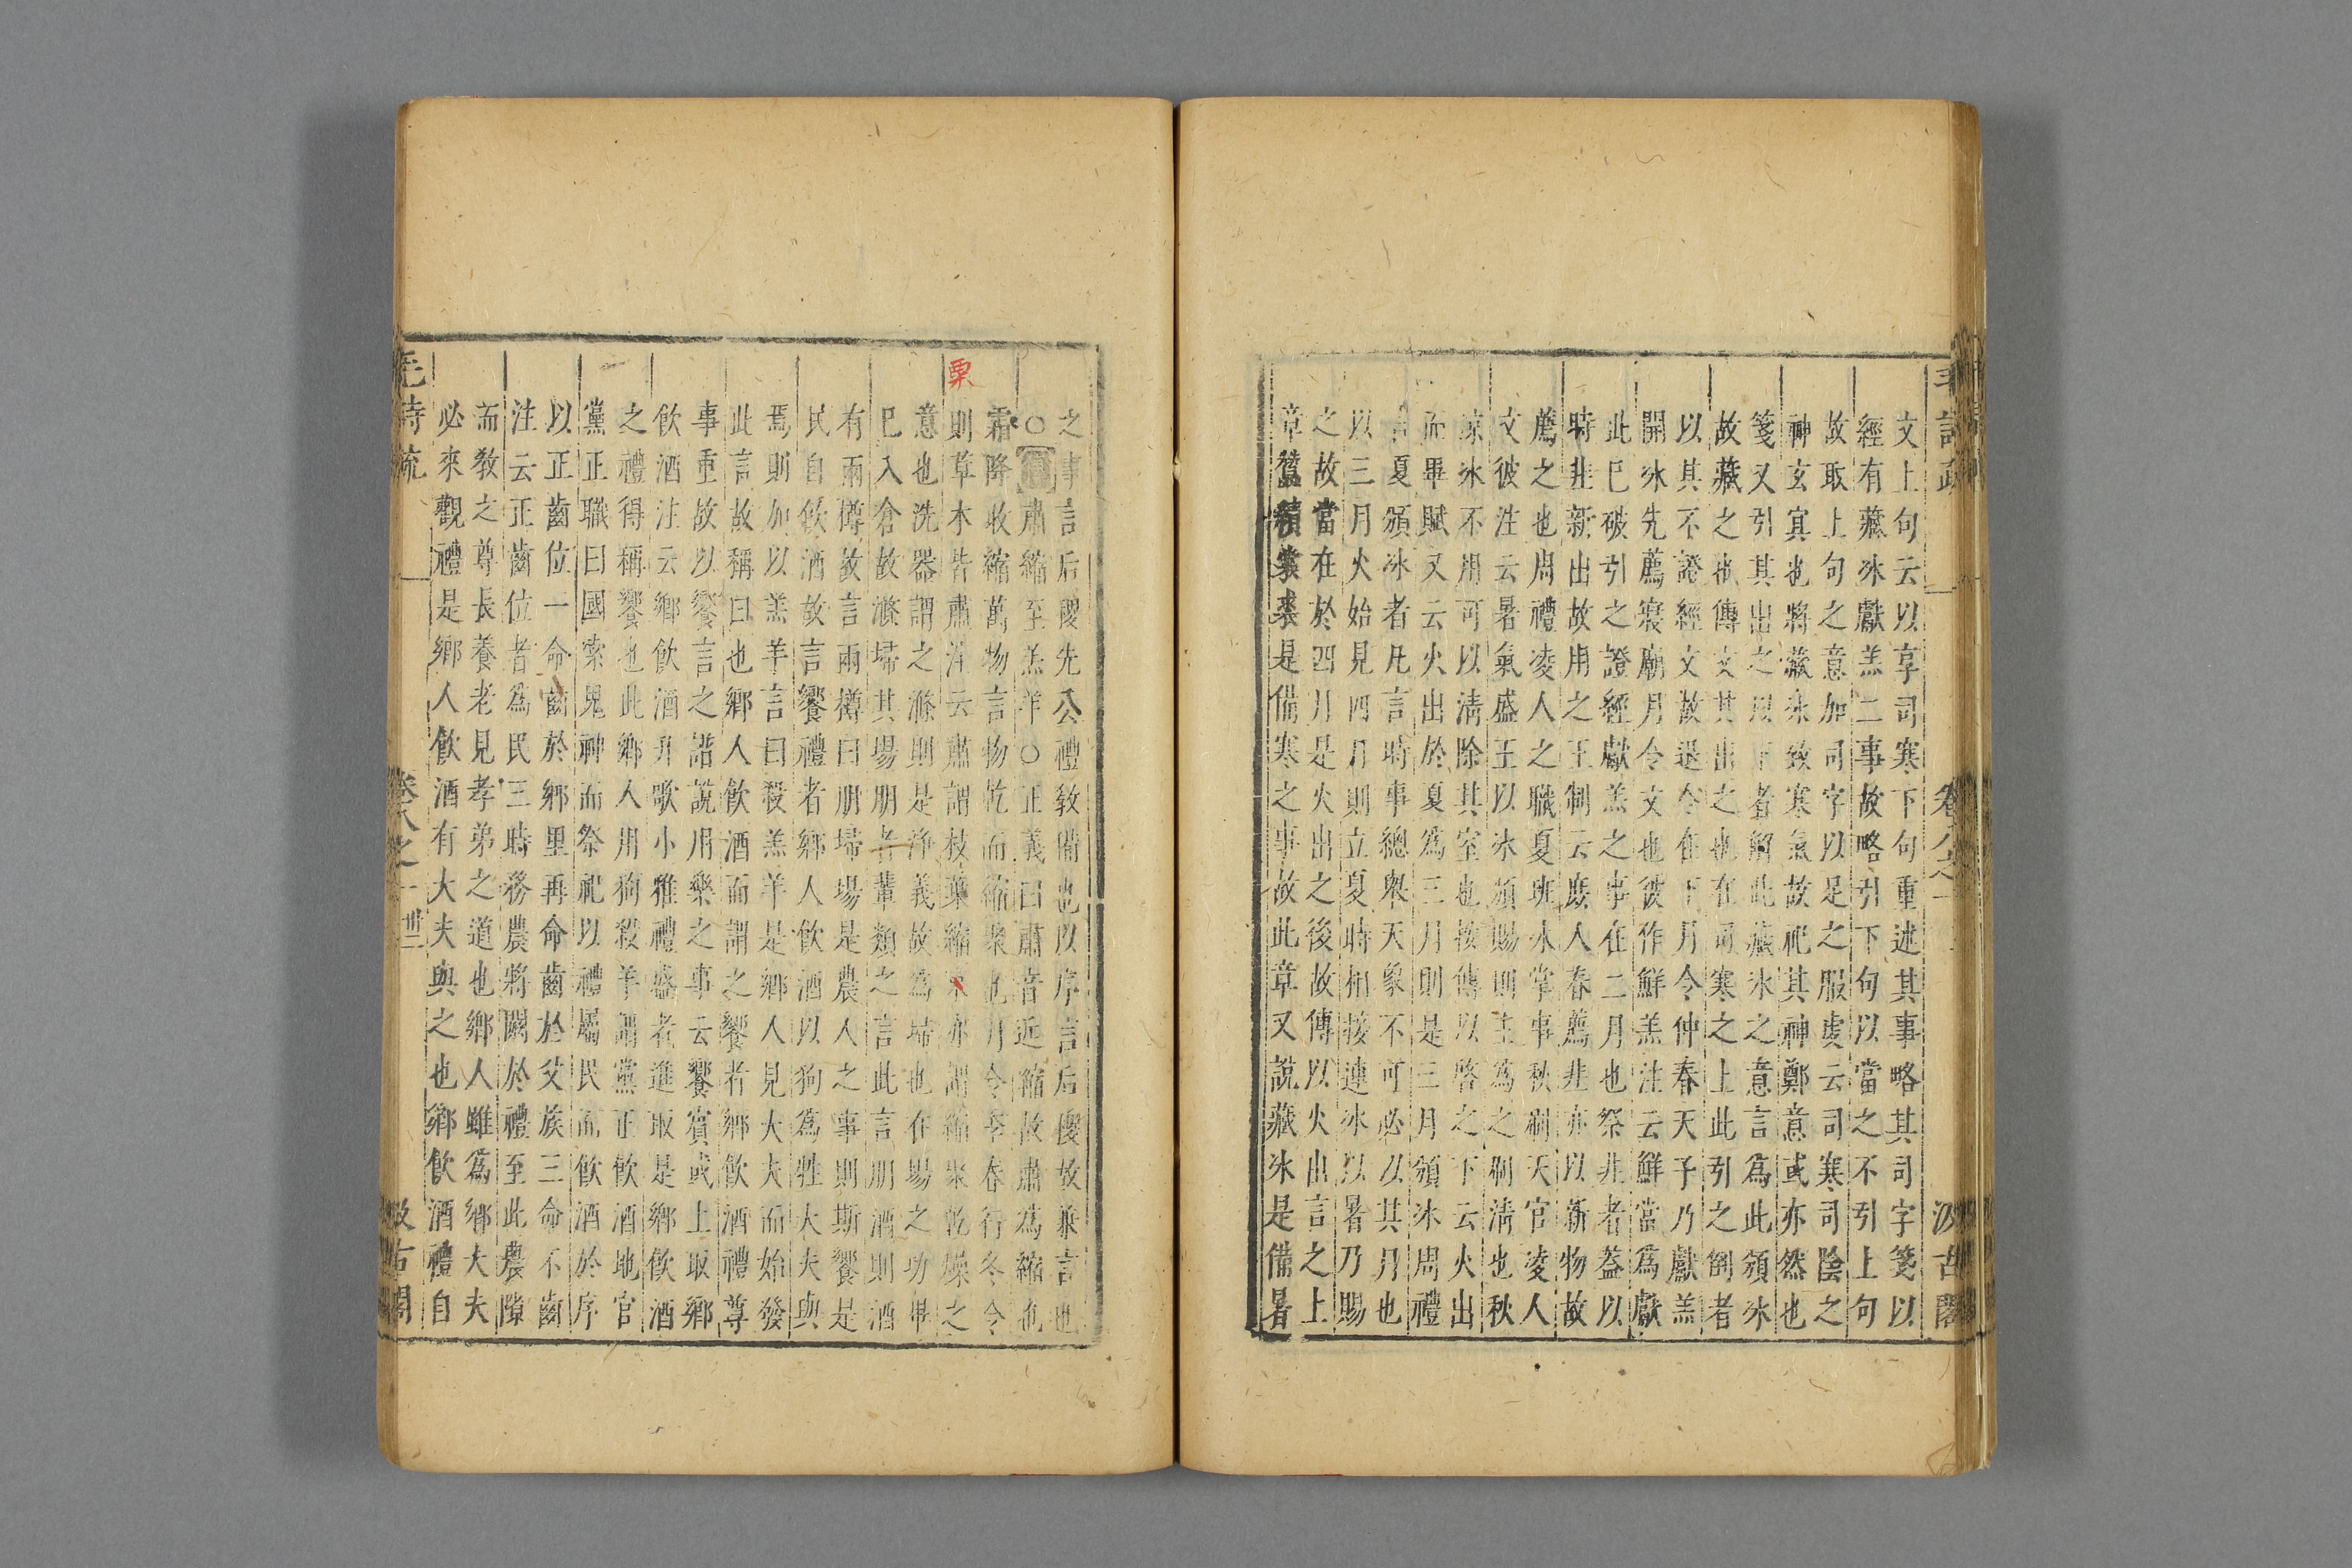 毛詩疏 卷八之一 汲古閣
文上句云以享司寒下句重述其事略其司字箋以
經有藏冰獻羔二事故略引下句以當之不引上句
故取上句之意加司字以足之服虔云司寒司陰之
神玄冥也將藏冰致寒氣故祀其神鄭意或亦然也
箋又引其出之以下者解此藏冰之意言為此頒冰
故藏之也傳文其出之也在司寒之上此引之倒者
以其不證經文故退令在下月令仲春天子乃獻羔
開冰先薦寢廟月令文也彼作鮮羔注云鮮當為獻
此巳破引之證經獻羔之事在二月也祭韭者蓋以
時韭新出故用之王制云庶人春薦韭亦以新物故
薦之也周禮凌人之職夏班冰掌事秋刷天官凌人
文彼注云暑氣盛王以冰頒賜則主為之刷清也秋
涼冰不用可以清除其室也按傳以啓之下云火出
而畢賦又云火出於夏為三月則是三月頒冰周禮
言夏頒冰者凡言時事總舉天象不可必以其月也
以三月火始見四月則立夏時相接連冰以暑乃賜
之故當在於四月是火出之後故傳以火出言之上
章蠶績裳裘是備寒之事故此章又說藏冰是備暑
之事言后稷先公禮教備也以序言后稷故兼言也
○肅縮至羔羊○正義曰肅音近縮故肅為縮也
霜降收縮萬物言物乾而縮聚也月令季春行冬令
則草木皆肅注云肅謂枝葉縮栗亦謂縮聚乾燥之
栗
意也洗器謂之滌則是淨義故為埽也在場之功畢
巳入倉故滌埽其場朋者輩類之言此言朋酒則酒
有兩樽故言兩樽曰朋埽場是農人之事則斯饗是
民自飲酒故言饗禮者鄉人飲酒以狗為牲大夫與
焉則加以羔羊言曰殺羔羊是鄉人見大夫而始發
此言故稱曰也鄉人飲酒而謂之饗者鄉飲酒禮尊
事重故以饗言之諾說用樂之事云饗賓或上取鄉
飲酒注云鄉飲酒升歌小雅禮盛者進取是鄉飲酒
之禮得稱饗也此鄉人用狗殺羊謂黨正飲酒地官
黨正職曰國索鬼神而祭祀以禮屬民而飲酒於序
以正齒位一命齒於鄉里再命齒於父族三命不齒
注云正齒位者為民三時務農將闕於禮至此農隙
而教之尊長養老見孝弟之道也鄉人雖為鄉大夫
必來觀禮是鄉人飲酒有大夫與之也鄉飲酒禮自
毛詩疏 卷八之一 卅二 汲古閣